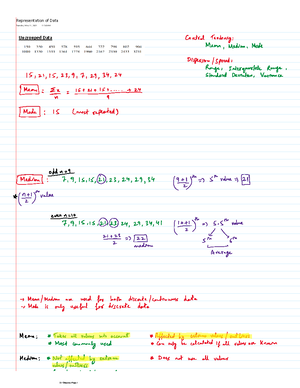 Representation of Data
Ungrouped Data
Central Tendency:
Mean, Median, Mode
Dispersion/Spread:
Range, Interquartile Range,
Standard Deviation, Variance
15, 21, 15, 23, 9, 7, 29, 34, 24
Mean : Σx/n = 15+21+15+......→24/9
Mode : 15 (most repeated)
odd n=9
Median : 7, 9, 15, 15, 21, 23, 24, 29, 34
(9+1/2)th => 5th value => 21
(n+1/2)th value
even n=10
7, 9, 15, 15, 21, 23, 24, 29, 34, 41
(10+1/2)th => 5.5th
21+23/2 => 22
median
5th 6th
Average
→ Mean/Median are used for both discrete/continuous data
→ Mode is only useful for discrete data
Mean: • Takes all values into account
• Most commonly used
• Affected by extreme values/outliers
• Can only be calculated if all values are known
Median: • Not affected by extreme values/outliers
• Does not use all values